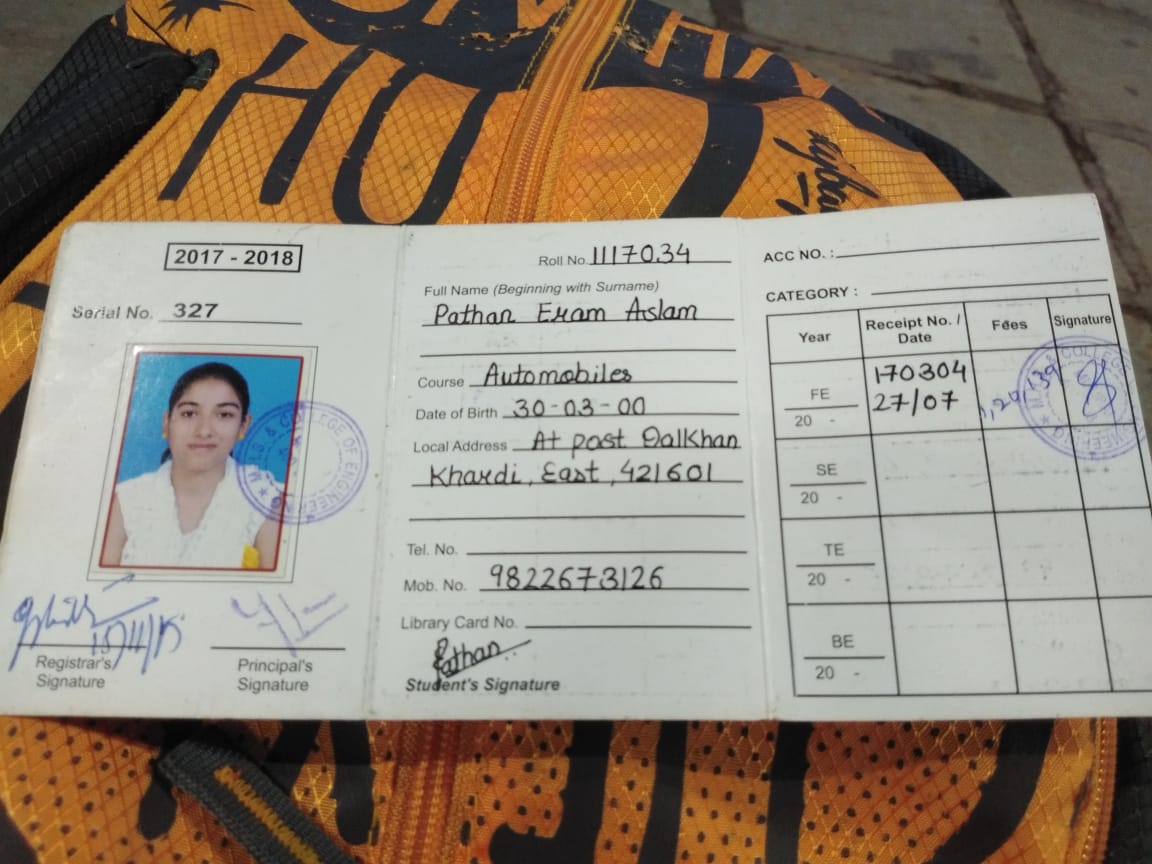 2017 - 2018
Serial No. 327
Registrar's Signature
Principal's Signature
Roll No. 1117034
Full Name (Beginning with Surname)
Pathan Eram Aslam
Course Automobiles
Date of Birth 30-03-00
Local Address At post Dalkhan
Khardi, East, 421601
Tel. No.
Mob. No. 9822673126
Library Card No.
Pathan
Student's Signature
ACC NO. :
CATEGORY :
Year Receipt No. / Date Fees Signature
FE 170304
20 - 27/07
SE
20 -
TE
20 -
BE
20 -
COLLEGE OF ENGINEERING
HU